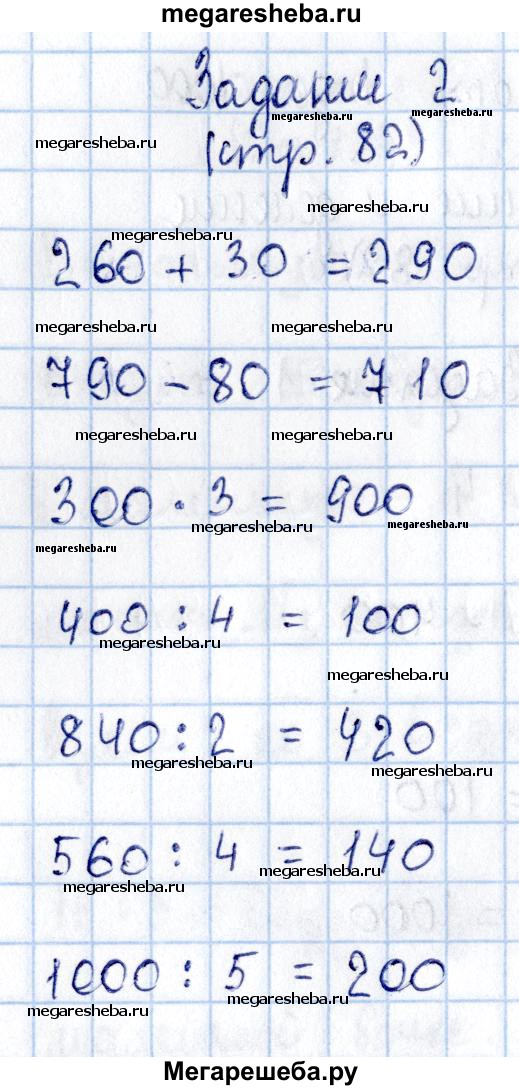 megaresheba.ru
Задание 2
megaresheba.ru megaresheba.ru
megaresheba.ru
(стр. 82)
megaresheba.ru
megaresheba.ru
260 + 30 = 290
megaresheba.ru megaresheba.ru
790 - 80 = 710
megaresheba.ru megaresheba.ru
300 · 3 = 900
megaresheba.ru megaresheba.ru
megaresheba.ru
400 : 4 = 100
megaresheba.ru
megaresheba.ru
840 : 2 = 420
megaresheba.ru megaresheba.ru
560 : 4 = 140
megaresheba.ru megaresheba.ru
1000 : 5 = 200
megaresheba.ru megaresheba.ru
Мегарешеба.ру